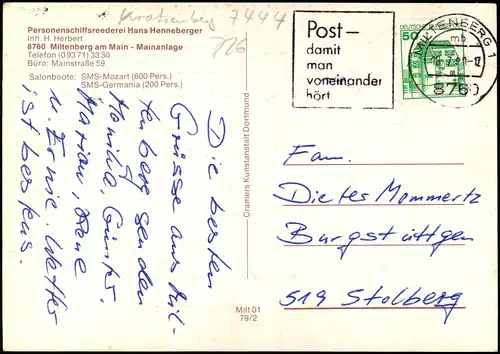 Krotzenberg 7444
226
Personenschiffsreederei Hans Henneberger
Inh. H. Herbert
8760 Miltenberg am Main - Mainanlage
Telefon (0 93 71) 33 30
Büro: Mainstraße 59
Salonboote: SMS-Mozart (600 Pers.)
SMS-Germania (200 Pers.)
Die besten
Grüsse aus Mil-
tenberg senden
Monika, Günter,
Marion, Rene
u. Ernie. Wetter
ist bestens.
Cramers Kunstanstalt Dortmund
Milt 01
79/2
Post –
damit
man
voneinander
hört
50
MILTENBERG 1
mb
8760
Fam.
Dieter Mommertz
Burgstüttgen
519 Stolberg